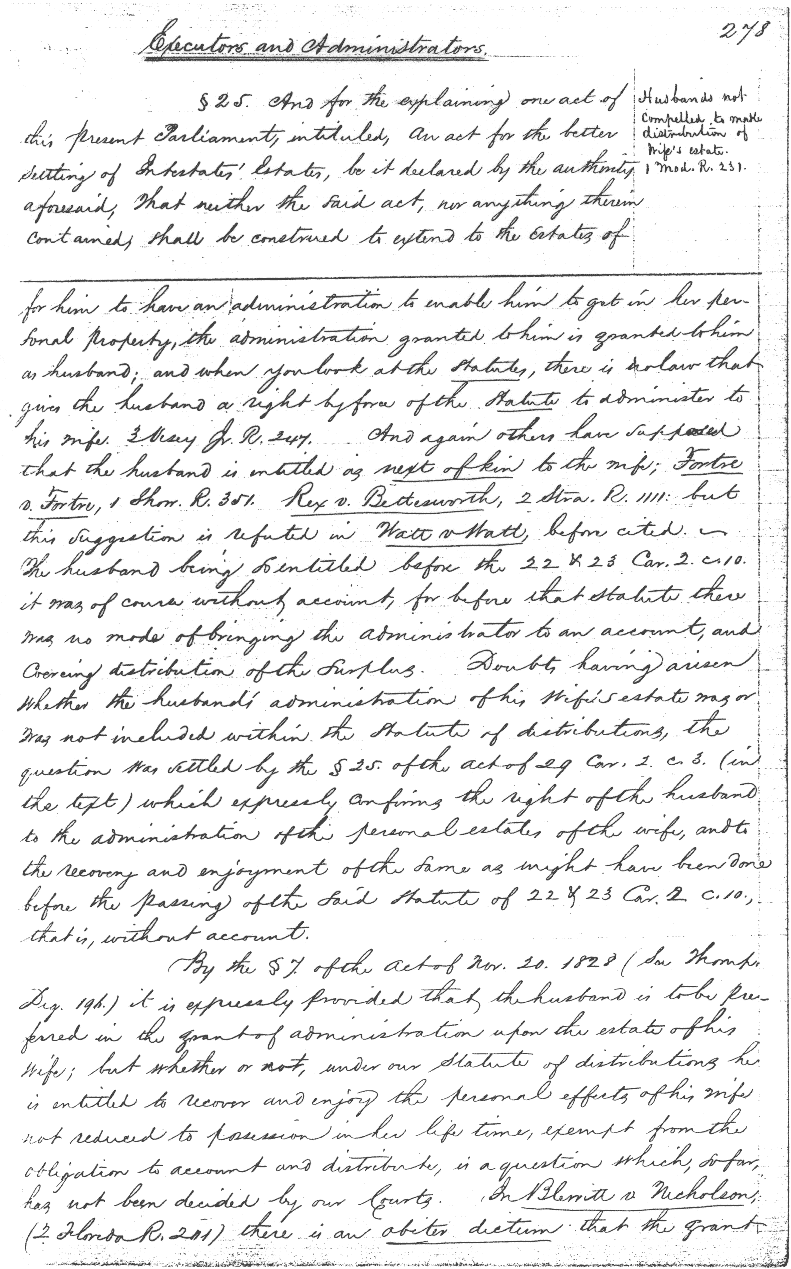 278
Executors and Administrators.
§ 25. And for the explaining one act of
this present Parliament, entituled, An act for the better
settling of Intestates' Estates, be it declared by the authority
aforesaid, That neither the said act, nor anything therein
contained, shall be construed to extend to the Estates of
Husbands not
compelled to make
distribution of
Wife's estate.
1 Mod. R. 231.
for him to have an administration to enable him to get in her per-
sonal property, the administration granted to him is granted to him
as husband; and when you look at the Statutes, there is no law that
gives the husband a right by force of the Statute to administer to
his wife. 3 Vesey Jr. R. 247. And again others have supposed
that the husband is entitled as next of kin to the wife; Fortre
v. Fortre, 1 Show. R. 351. Rex v. Bettesworth, 2 Stra. R. 1111: but
this suggestion is refuted in Watt v Watt, before cited.
The husband being so entitled before the 22 & 23 Car. 2. c. 10.
it was of course without account, for before that Statute there
was no mode of bringing the administrator to an account, and
Coercing distribution of the Surplus. Doubts having arisen
whether the husband's administration of his Wife's estate was or
was not included within the Statute of distributions, the
question was settled by the § 25. of the act of 29 Car. 2. c. 3. (in
the text) which expressly confirms the right of the husband
to the administration of the personal estates of the wife, and to
the recovery and enjoyment of the same as might have been done
before the passing of the said Statute of 22 & 23 Car. 2 c. 10.,
that is, without account.
By the § 7. of the act of Nov. 20. 1828 (See Thomp.
Dig. 196.) it is expressly provided that the husband is to be pre-
ferred in the grant of administration upon the estate of his
Wife; but whether or not, under our Statute of distributions he
is entitled to recover and enjoy the personal effects of his wife
not reduced to possession in her life time, exempt from the
obligation to account and distribute, is a question which, so far,
has not been decided by our Courts. In Blerritt v Nicholson,
(2 Florida R. 201) there is an obiter dictum that the grant